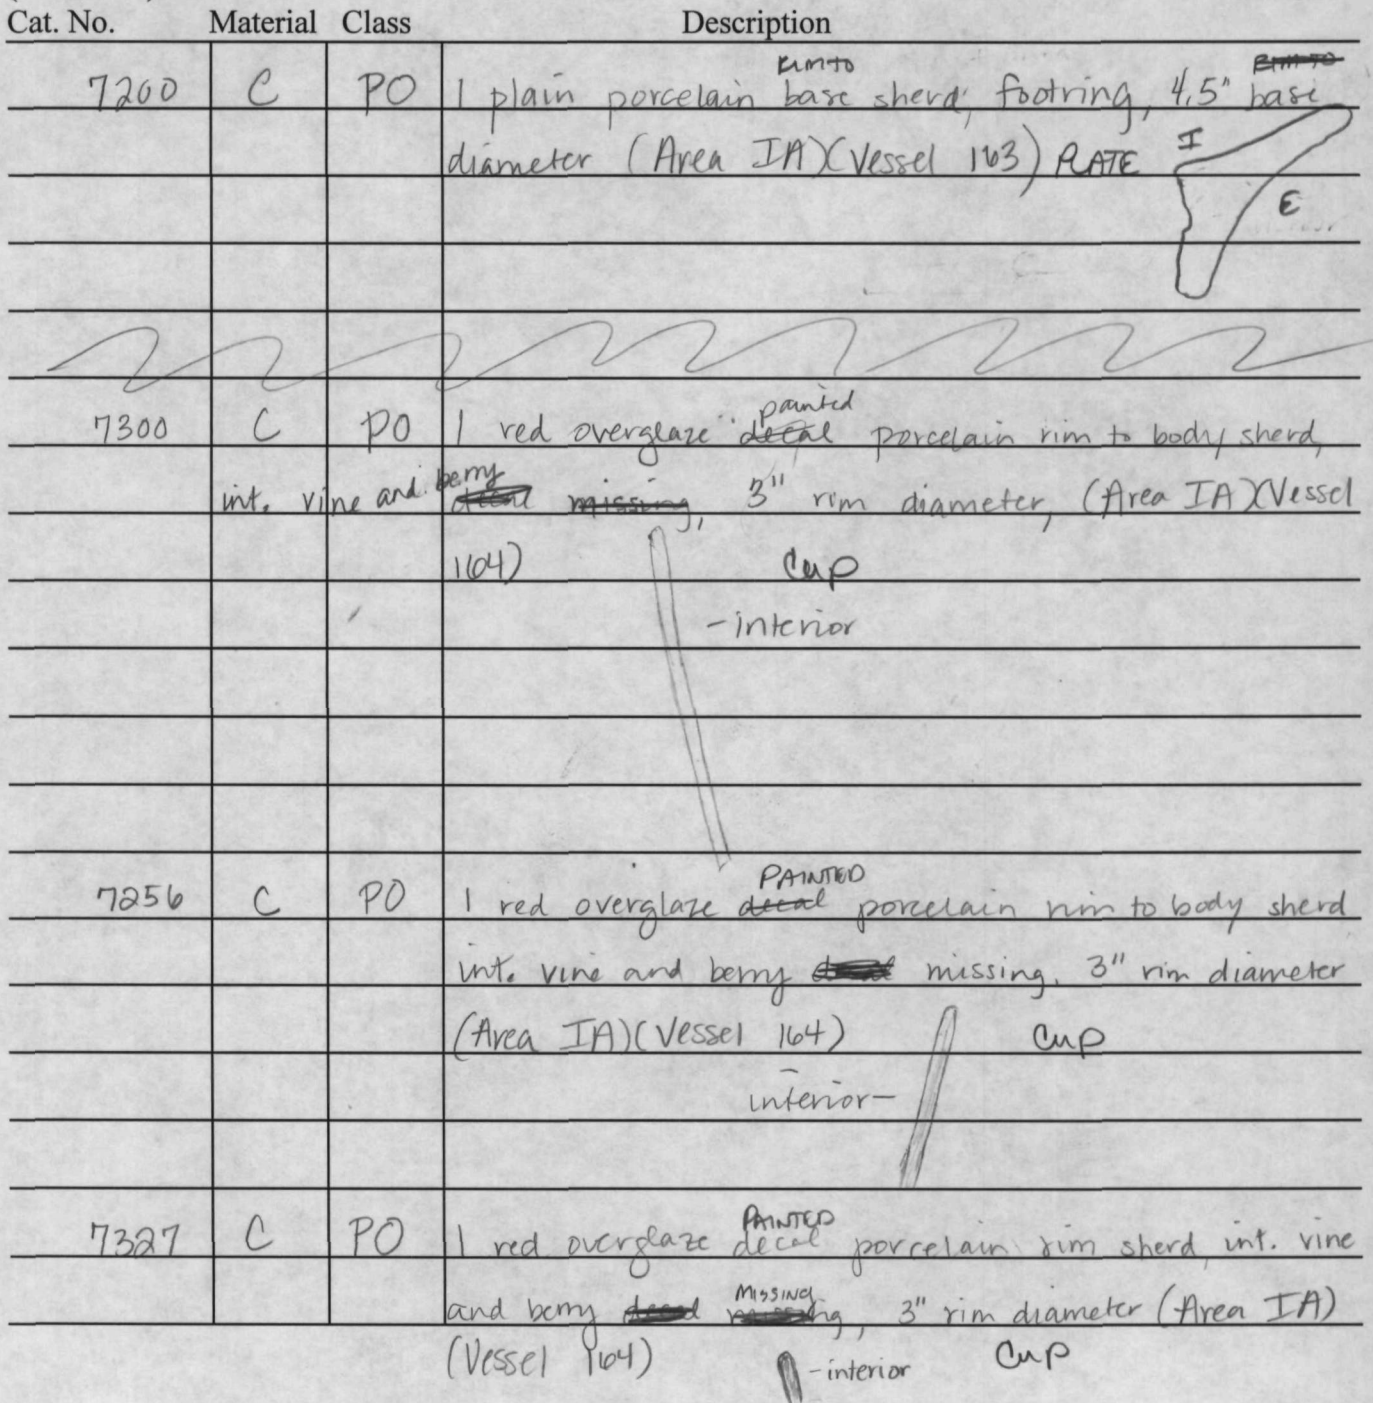 Cat. No. Material Class Description
7200 C PO 1 plain porcelain RIM TO base sherd, footring, 4.5" RIM TO base
diameter (Area IA)(Vessel 163) PLATE I
E
7300 C PO 1 red overglaze decal painted porcelain rim to body sherd,
int. vine and berry decal missing, 3" rim diameter, (Area IA)(Vessel
164) Cup
-interior
7256 C PO 1 red overglaze decal PAINTED porcelain rim to body sherd
int. vine and berry decal missing, 3" rim diameter
(Area IA)(Vessel 164) Cup
interior-
7327 C PO 1 red overglaze decal PAINTED porcelain rim sherd, int. vine
and berry decal missing MISSING, 3" rim diameter (Area IA)
(Vessel 164) -interior Cup